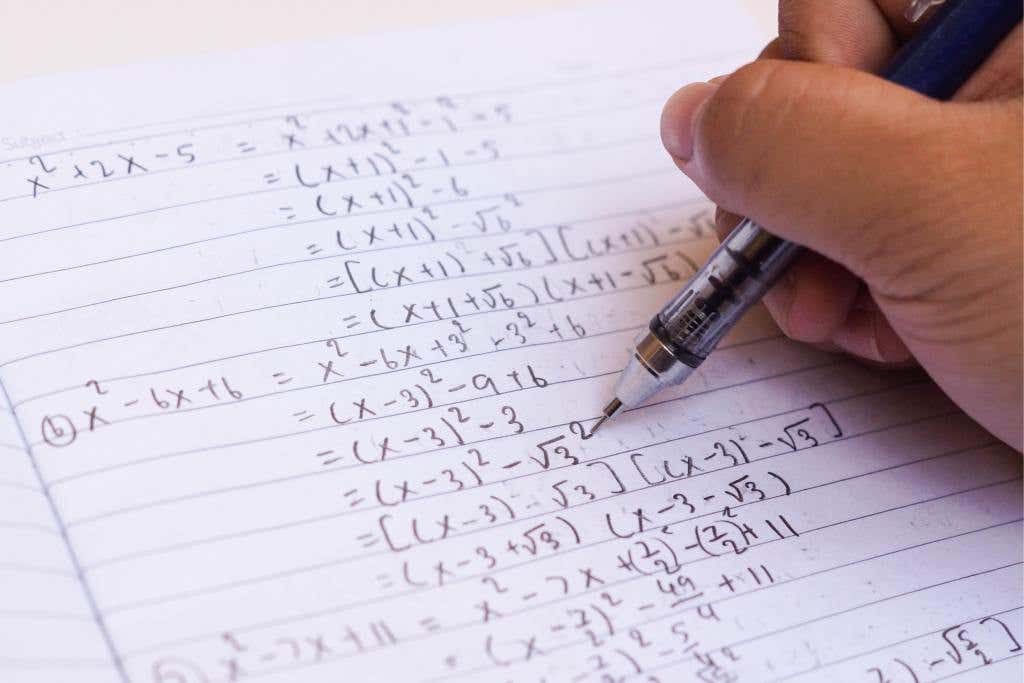 Subject
x² + 2x - 5 = x² + 2x + 1² - 1² - 5
= (x+1)² - 1 - 5
= (x+1)² - 6
= (x+1)² - √6²
= [(x+1) + √6] [(x+1) - √
= (x+1+√6) (x+1-√6)
ⓑ x² - 6x + 6 = x² - 6x + 3² - 3² + 6
= (x-3)² - 9 + 6
= (x-3)² - 3
= (x-3)² - √3²
= [(x-3) - √3] [(x-3) - √3]
= (x-3+√3) (x-3-√3)
x² - 7x + 11 = x² - 7x + (7/2)² - (7/2)² + 11
= (x - 7/2)² - 49/4 + 11
/2)² - 5/4
) - √5/2]